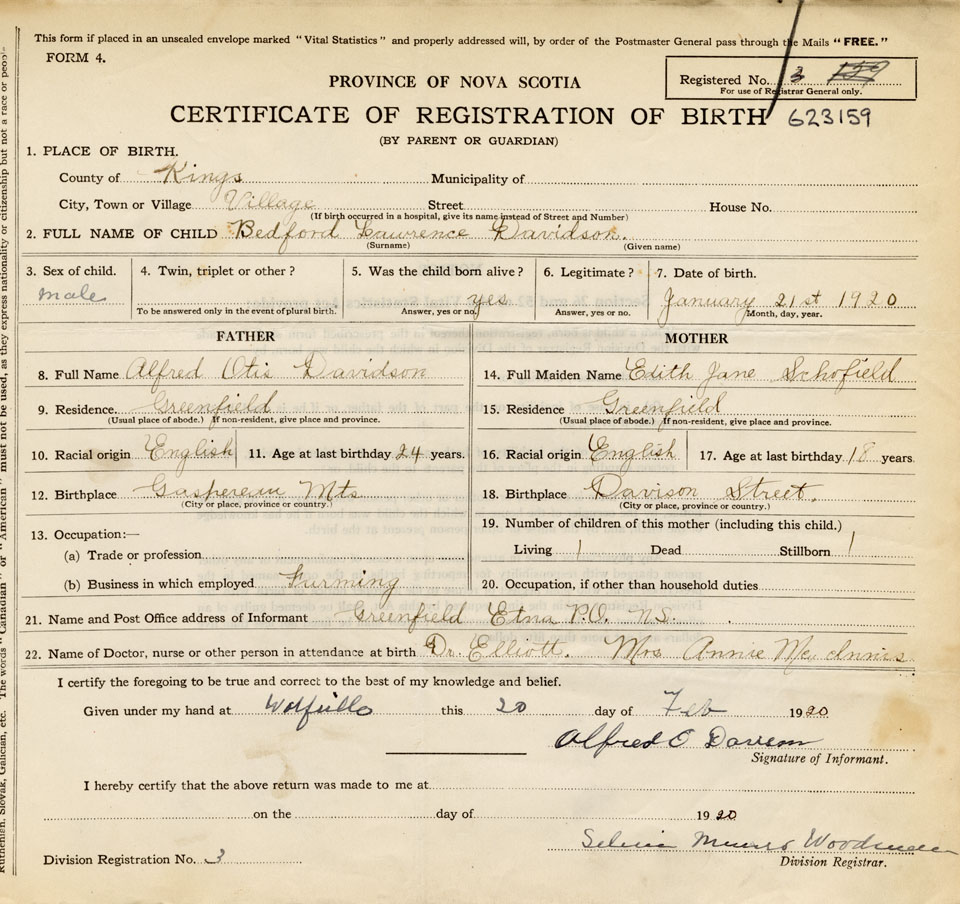 This form if placed in an unsealed envelope marked "Vital Statistics" and properly addressed will, by order of the Postmaster General pass through the Mails "FREE."
FORM 4.
Registered No. 3 159
For use of Registrar General only.
PROVINCE OF NOVA SCOTIA
CERTIFICATE OF REGISTRATION OF BIRTH 623159
(BY PARENT OR GUARDIAN)
1. PLACE OF BIRTH.
County of Kings Municipality of
City, Town or Village Village Street House No.
(If birth occurred in a hospital, give its name instead of Street and Number)
2. FULL NAME OF CHILD Bedford Lawrence Davidson.
(Surname) (Given name)
3. Sex of child. 4. Twin, triplet or other? 5. Was the child born alive? 6. Legitimate? 7. Date of birth.
male yes January 21st 1920
To be answered only in the event of plural birth. Answer, yes or no. Answer, yes or no. Month, day, year.
FATHER MOTHER
8. Full Name Alfred Otis Davidson 14. Full Maiden Name Edith Jane Schofield
9. Residence. Greenfield 15. Residence Greenfield
(Usual place of abode.) If non-resident, give place and province. (Usual place of abode.) If non-resident, give place and province.
10. Racial origin English 11. Age at last birthday 24 years. 16. Racial origin English 17. Age at last birthday 18 years.
12. Birthplace Gaspereau Mts 18. Birthplace Davison Street.
(City or place, province or country.) (City or place, province or country.)
13. Occupation:— 19. Number of children of this mother (including this child.)
(a) Trade or profession Living 1 Dead Stillborn 1
(b) Business in which employed Farming 20. Occupation, if other than household duties
21. Name and Post Office address of Informant Greenfield Etna P.O. N.S.
22. Name of Doctor, nurse or other person in attendance at birth Dr. Elliott. Mrs Annie Mc Innis
I certify the foregoing to be true and correct to the best of my knowledge and belief.
Given under my hand at Wolfville this 20 day of Feb 1920
Alfred O
Signature of Informant.
I hereby certify that the above return was made to me at
on the day of 1920
Munro
Division Registration No. 3 Division Registrar.
Ruthenian, Slovak, Galician, etc. The words "Canadian" or "American" must not be used, as they express nationality or citizenship but not a race or